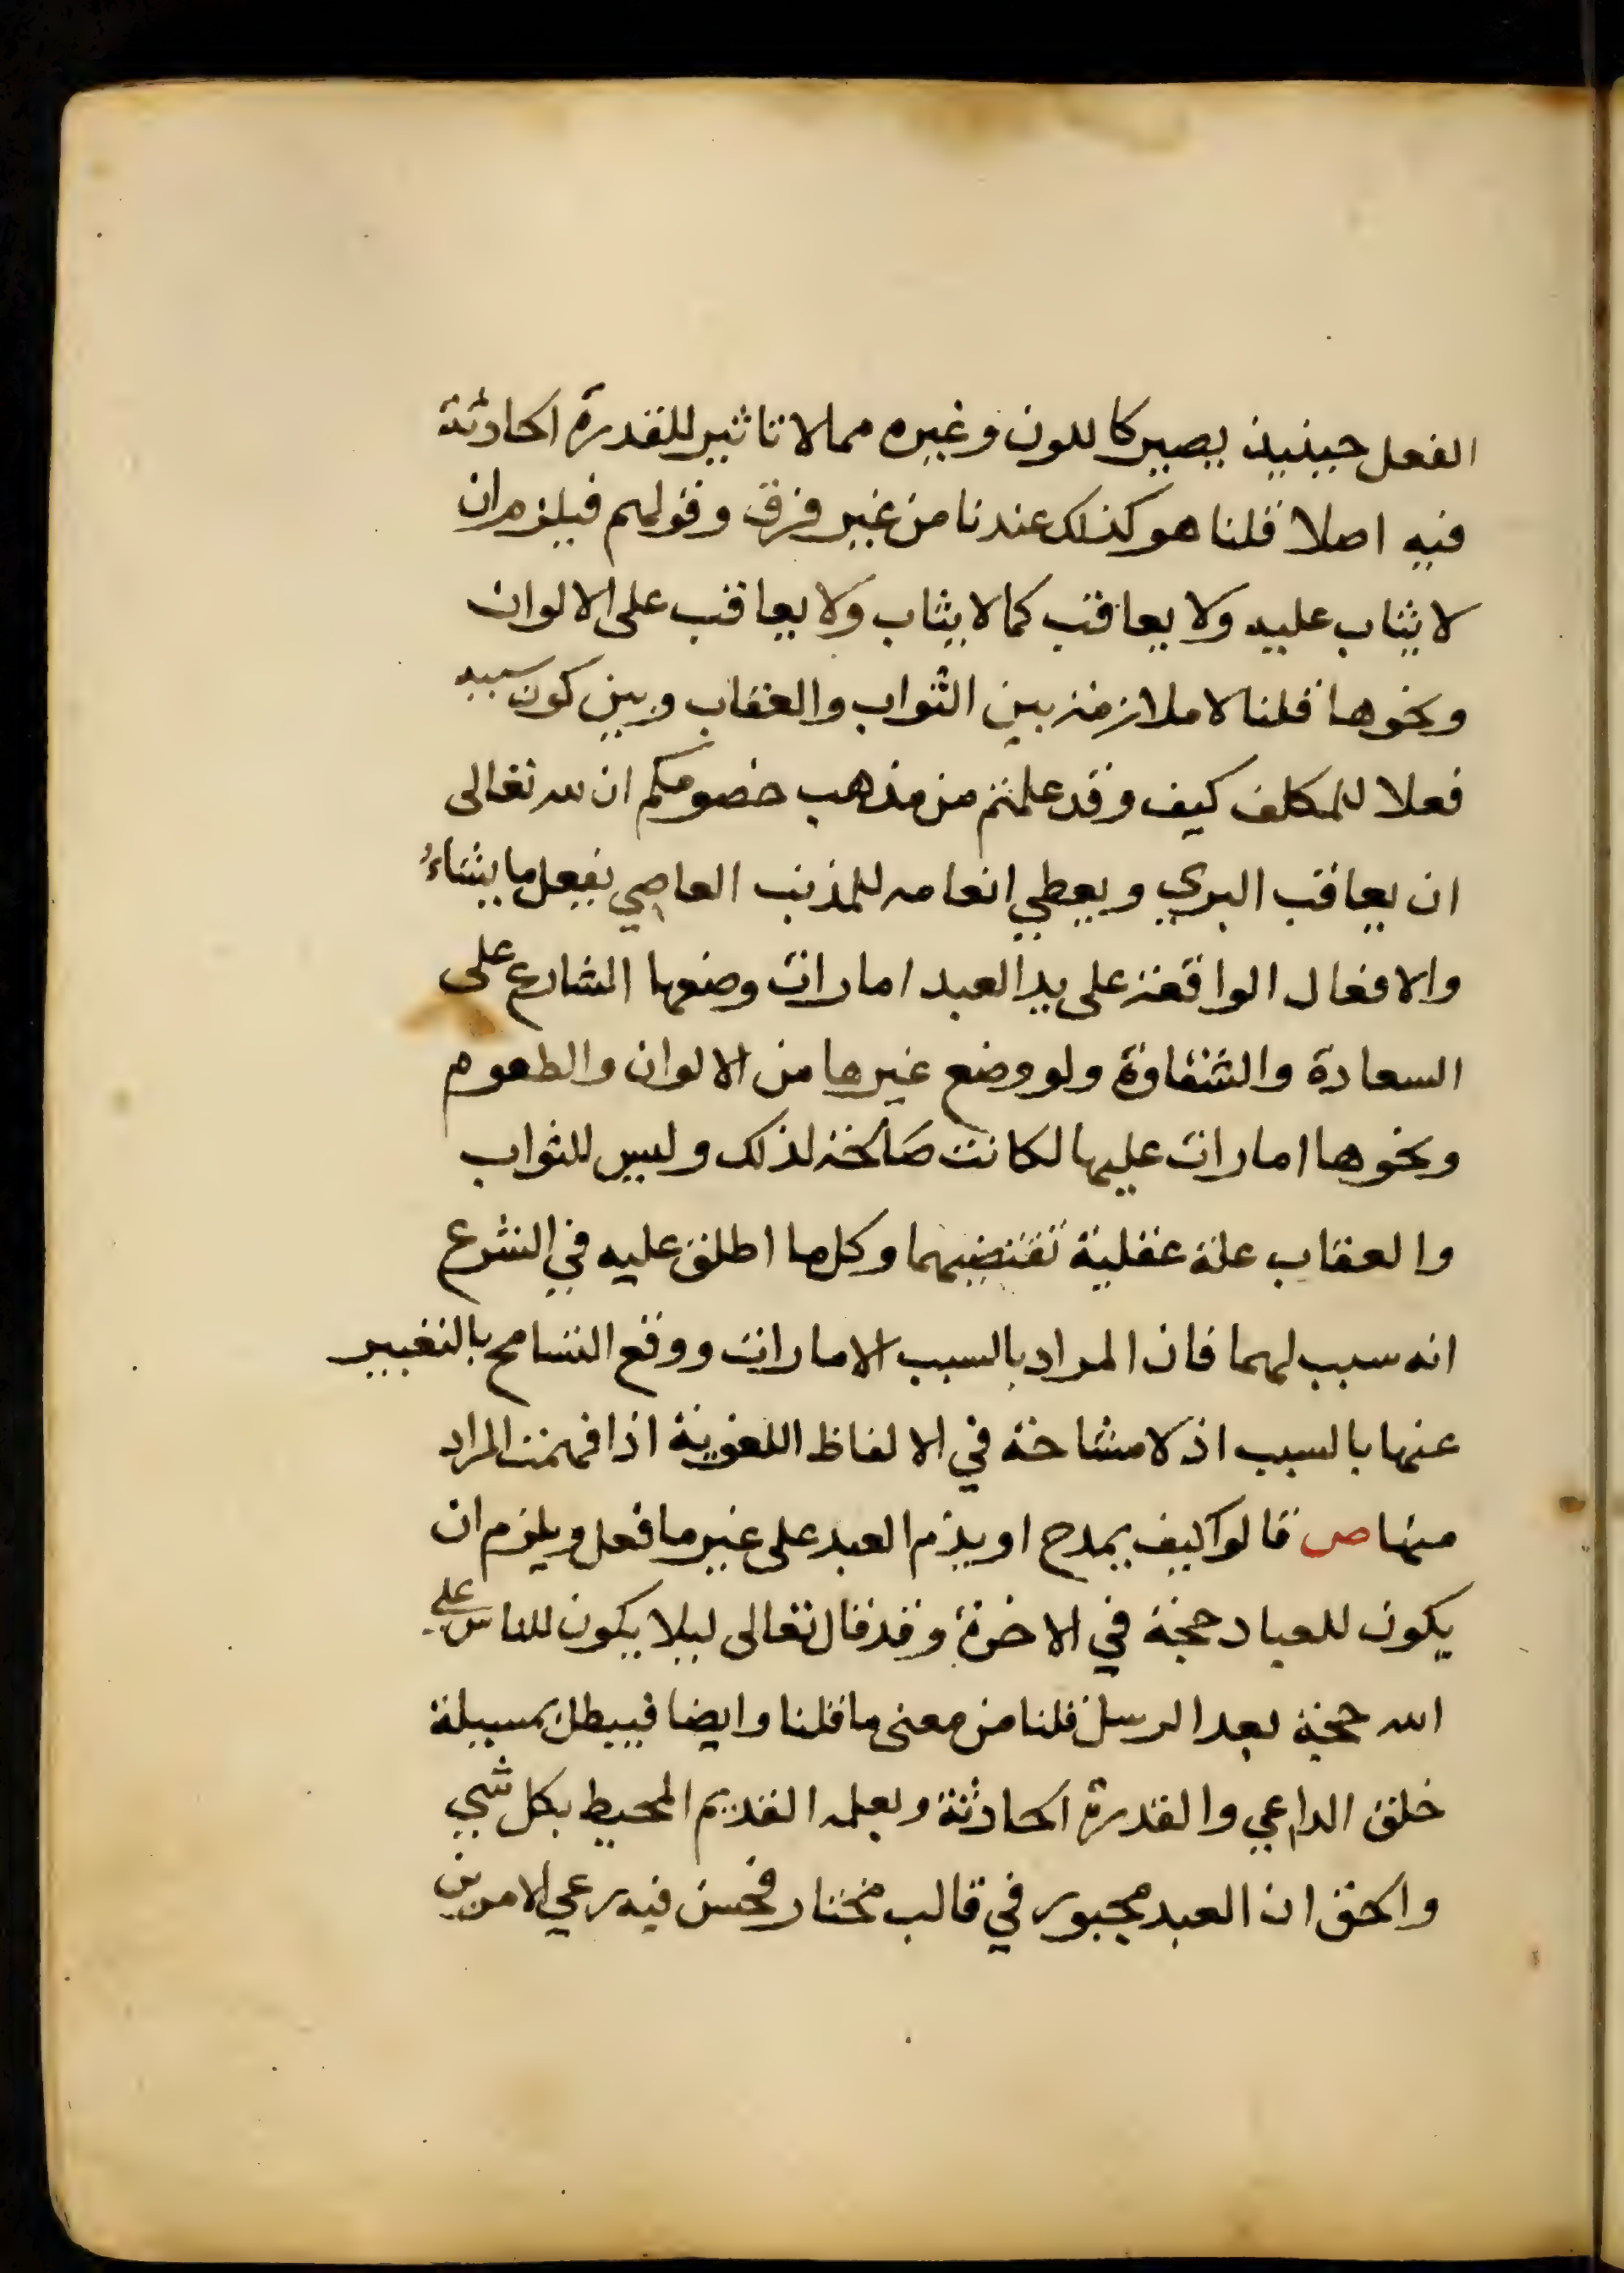 الفعل حينيذ يصير كاللون وغيره مما لا تاثير للقدرة الحادثة
فيه اصلا قلنا هو كذلك عندنا من غير فرق وقولهم فيلزم ان
لا يثاب عليه ولا يعاقب كما لا يثاب ولا يعاقب على الالوان
ونحوها قلنا لا ملازمة بين الثواب والعقاب وبين كون سببه
فعلا للمكلف كيف وقد علمتم من مذهب خصومكم ان لله تعالى
ان يعاقب البري ويعطي انعامه للمذنب العاصي يفعل ما يشاءُ
والافعال الواقعة على يد العبد امارات وضعها الشارع على
السعادة والشقاوة ولو وضع غيرها من الالوان والطعوم
ونحوها امارات عليها لكانت صَالحة لذلك وليس للثواب
والعقاب علة عقلية تقتضيهما وكل ما اطلق عليه في الشرع
انه سبب لهما فان المراد بالسبب الامارات ووقع التسامح بالتعبير
عنها بالسبب اذ لا مشاحة في الالفاظ اللغوية اذا فهمت المراد
منها ص قالوا كيف يمدح او يذم العبد على غير ما فعل ويلزم ان
يكون للعباد حجة في الاخرة وقد قال تعالى ليلا يكون للناس على
الله حجة بعد الرسل قلنا من معنى ما قلنا وايضا فيبطل بمسيلة
خلق الداعي والقدرة الحادثة وبعلمه القديم المحيط بكل شي
والحق ان العبد مجبور في قالب مختار فحسن فيه رعي الامرين